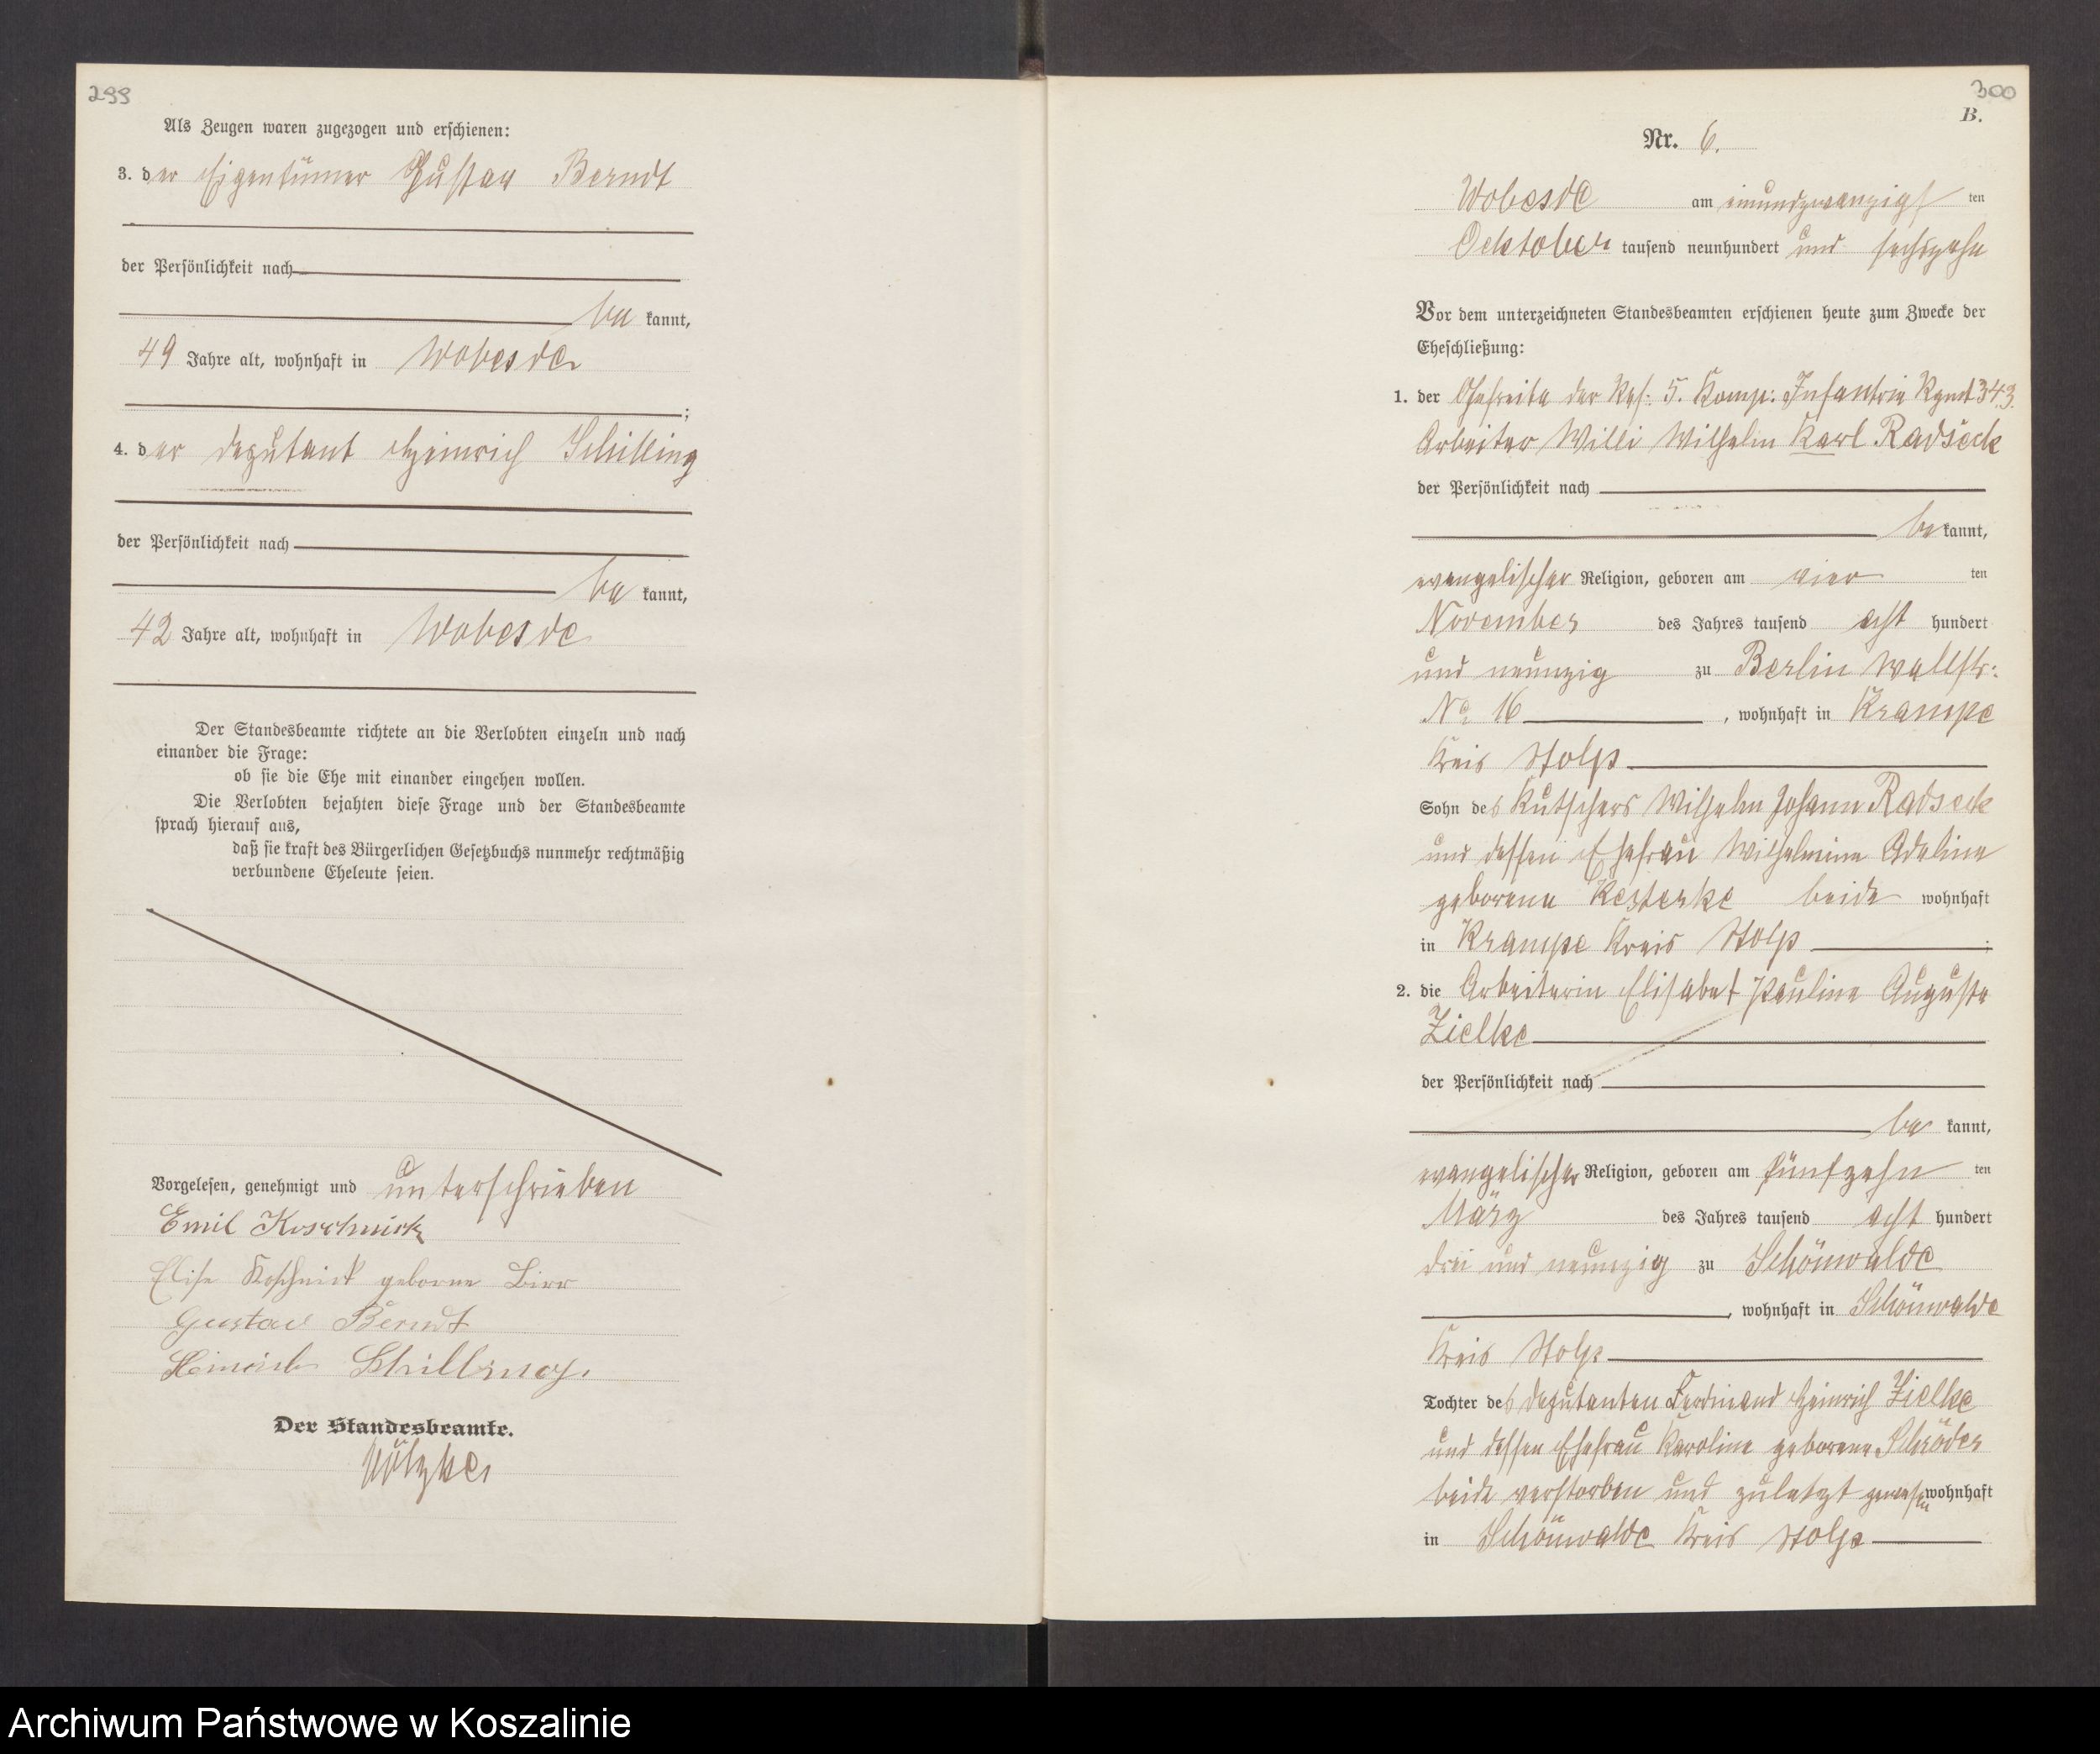 299
Als Zeugen waren zugezogen und erschienen:
3. der Eigentümer Gustav Berndt
der Persönlichkeit nach
be kannt,
49 Jahre alt, wohnhaft in Wobesde
;
4. der Deputant Heinrich Schilling
der Persönlichkeit nach
be kannt,
42 Jahre alt, wohnhaft in Wobesde
Der Standesbeamte richtete an die Verlobten einzeln und nach
einander die Frage:
ob sie die Ehe mit einander eingehen wollen.
Die Verlobten bejahten diese Frage und der Standesbeamte
sprach hierauf aus,
daß sie kraft des Bürgerlichen Gesetzbuchs nunmehr rechtmäßig
verbundene Eheleute seien.
Vorgelesen, genehmigt und unterschrieben
Emil Koschnick
Elise Koschnick geborne Birr
Gustav Berndt
Heinrich Schilling.
Der Standesbeamte.
300
B.
Nr. 6.
Wobesde am einundzwanzigsten
Ocktober tausend neunhundert und sechszehn
Vor dem unterzeichneten Standesbeamten erschienen heute zum Zwecke der
Eheschließung:
1. der Gefreite der Res. 5. Komp. Infantrie Rgmt 343.
Arbeiter Willi Wilhelm Karl Radseck
der Persönlichkeit nach
be kannt,
evangelischer Religion, geboren am vier ten
November des Jahres tausend acht hundert
und neunzig zu Berlin Wallstr:
No 16, wohnhaft in Krampe
Kreis Stolp
Sohn des Kutschers Wilhelm Johann Radseck
und dessen Ehefrau Wilhelmine Adeline
geborene Kesterke beide wohnhaft
in Krampe Kreis Stolp ;
2. die Arbeiterin Elisabet Pauline Auguste
Zielke
der Persönlichkeit nach
be kannt,
evangelischer Religion, geboren am fünfzehn ten
März des Jahres tausend acht hundert
drei und neunzig zu Schönwalde
, wohnhaft in Schönwalde
Kreis Stolp
Tochter des Deputanten Ferdinand Heinrich Zielke
und dessen Ehefrau Karoline geborene Schröder
beide verstorben und zuletzt gewesen wohnhaft
in Schönwalde Kreis Stolp
Archiwum Państwowe w Koszalinie